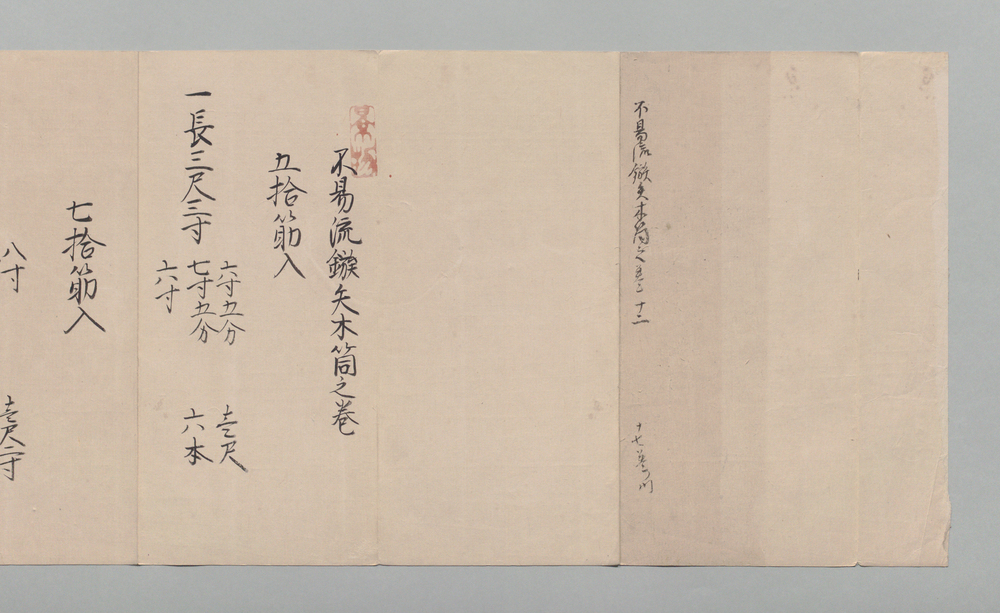 不易流鏃矢木筒之巻
十二
十七
不易流鏃矢木筒之巻
五拾筋入
一長三尺三寸
六寸五分
七寸五分
六六寸
壱尺
六本
七拾筋入
八寸
壱尺二寸